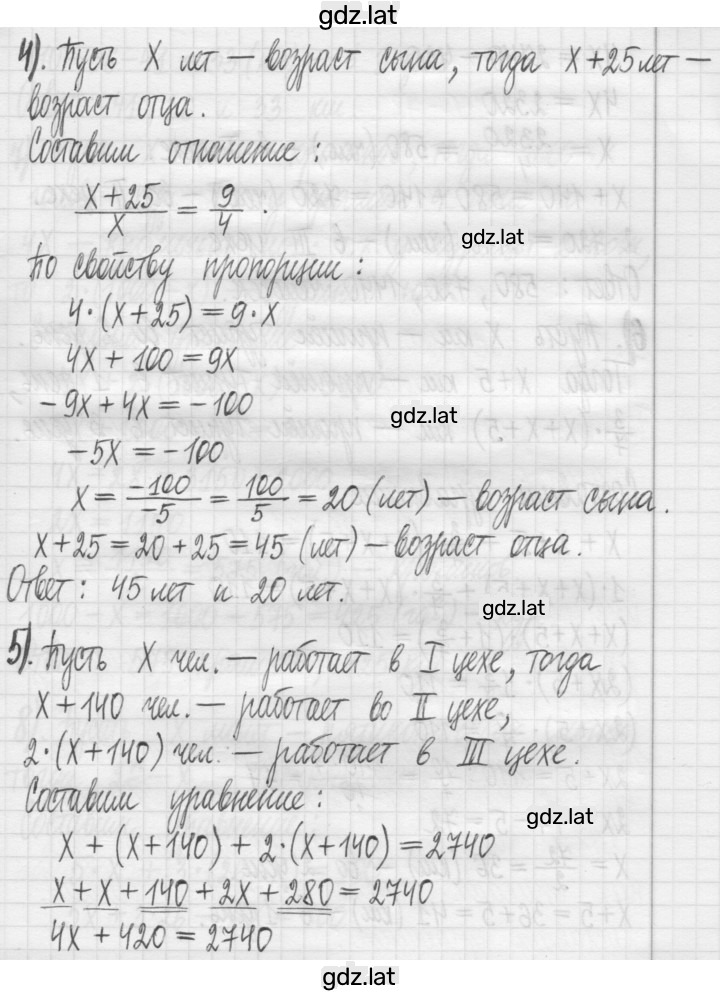 gdz.lat
4). Пусть x лет — возраст сына, тогда x+25 лет —
возраст отца.
Составим отношение:
(x+25)/x = 9/4.
gdz.lat
По свойству пропорции:
4·(x+25)=9·x
4x+100=9x
-9x+4x=-100
gdz.lat
-5x=-100
x=-100/-5=100/5=20 (лет) — возраст сына.
x+25=20+25=45 (лет) — возраст отца.
Ответ: 45 лет и 20 лет.
gdz.lat
5). Пусть x чел. — работает в I цехе, тогда
x+140 чел. — работает во II цехе,
2·(x+140) чел. — работает в III цехе.
Составим уравнение:
gdz.lat
x+(x+140)+2·(x+140)=2740
x+x+140+2x+280=2740
4x+420=2740
gdz.lat